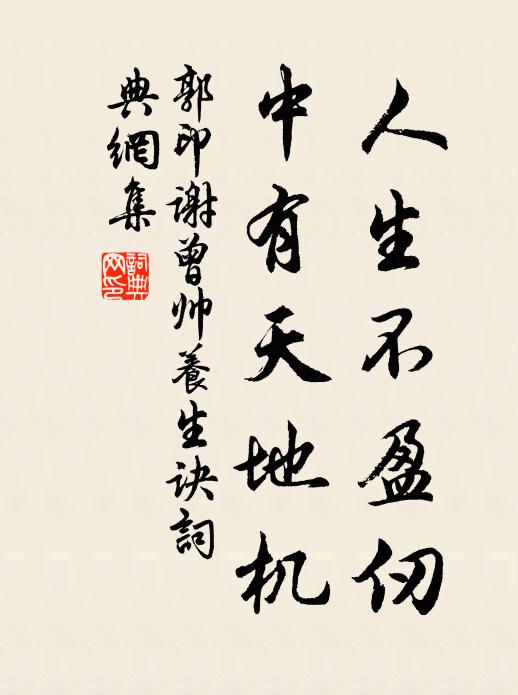 人生不盈仞
中有天地机
郭印谢曾帅養生诀詞
典網集
詞典
网印